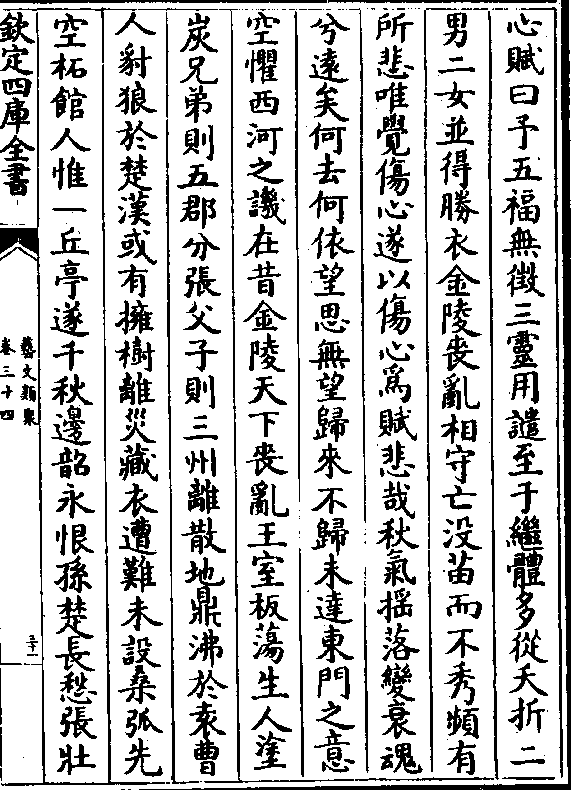 心賦曰予五福無徴三靈用譴至于繼體多從夭折二
男二女並得勝衣金陵喪亂相守亡没苗而不秀頻有
所悲唯覺傷心遂以傷心爲賦悲哉秋氣揺落變衰魂
兮遠矣何去何依望思無望歸來不歸未達東門之意
空懼西河之譏在昔金陵天下喪亂王室板蕩生人塗
炭兄弟則五郡分張父子則三州離散地鼎沸於袁曹
人豺狼於楚漢或有擁樹離災藏衣遭難未設桑弧先
空柘館人惟一丘亭遂千秋邊韶永恨孫楚長愁張壯
欽定四庫全書
藝文類聚
卷三十四
三十一